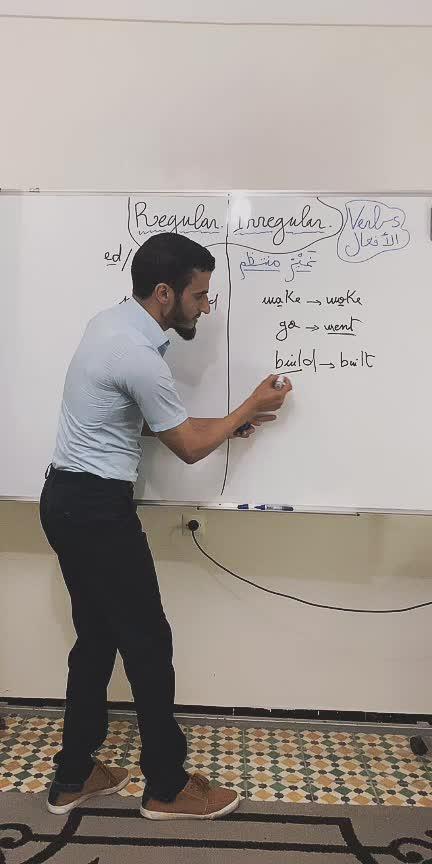 Regular. Irregular. Verbs
الأفعال
ed/ غَيْر منتظم
waKe → woKe
go → went
build → built